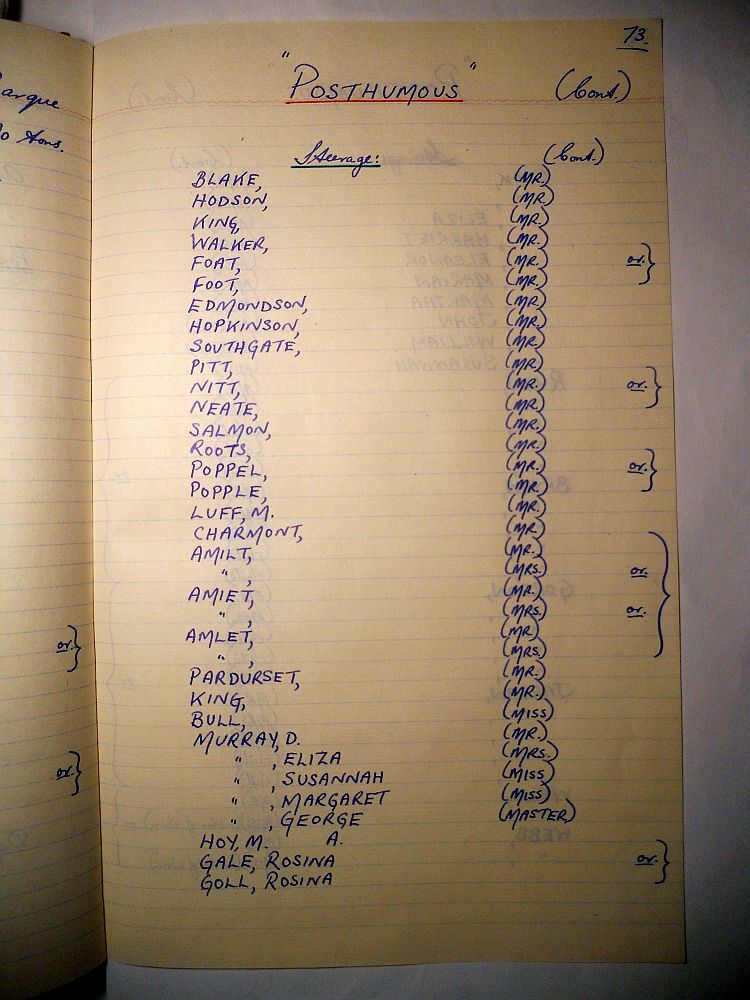 73.
"POSTHUMOUS" (Cont.)
Steerage: (Cont.)
BLAKE, (MR.)
HODSON, (MR.)
KING, (MR.)
WALKER, (MR.)
FOAT, (MR.) or. }
FOOT, (MR.)
EDMONDSON, (MR.)
HOPKINSON, (MR.)
SOUTHGATE, (MR.)
PITT, (MR.)
NITT, (MR.) or. }
NEATE, (MR.)
SALMON, (MR.)
ROOTS, (MR.)
POPPEL, (MR.) or. }
POPPLE, (MR.)
LUFF, M. (MR.)
CHARMONT, (MR.)
AMILT, (MR.)
" , (MRS.) or. }
AMIET, (MR.)
" , (MRS.) or.
AMLET, (MR.)
" , (MRS.)
PARDURSET, (MR.)
KING, (MR.)
BULL, (MISS)
MURRAY, D. (MR.)
" , ELIZA (MRS.)
" , SUSANNAH (MISS)
" , MARGARET (MISS)
" , GEORGE (MASTER)
HOY, M. A.
GALE, ROSINA or. }
GOLL, ROSINA
arque
0 tons.
or. }
or. }